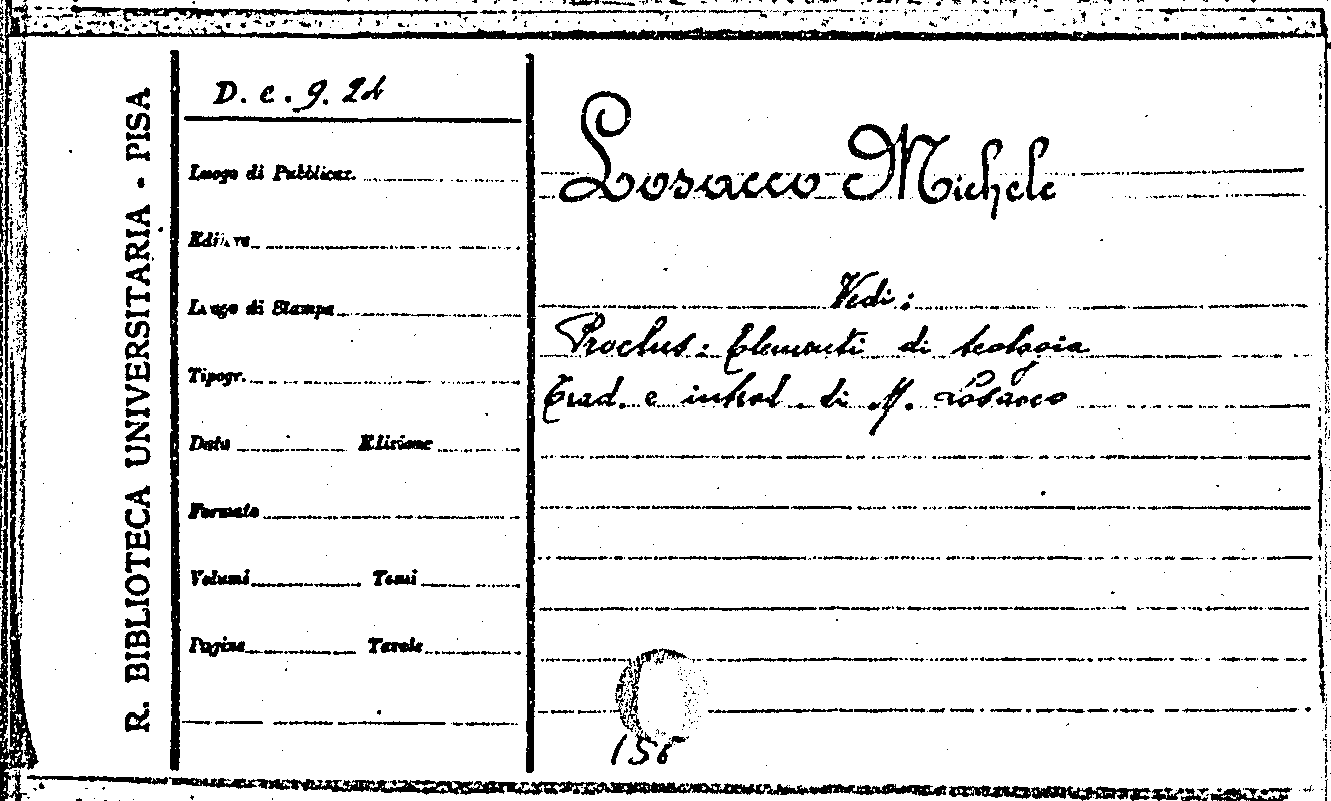 R. BIBLIOTECA UNIVERSITARIA - PISA
D. c. 9. 24
Luogo di Pubblicaz.
Editore
Luogo di Stampa
Tipogr.
Data Edizione
Formato
Volumi Tomi
Pagine Tavole
Losacco Michele
Vedi:
Proclus: Elementi di teologia
Trad. e introd. di M. Losacco
156